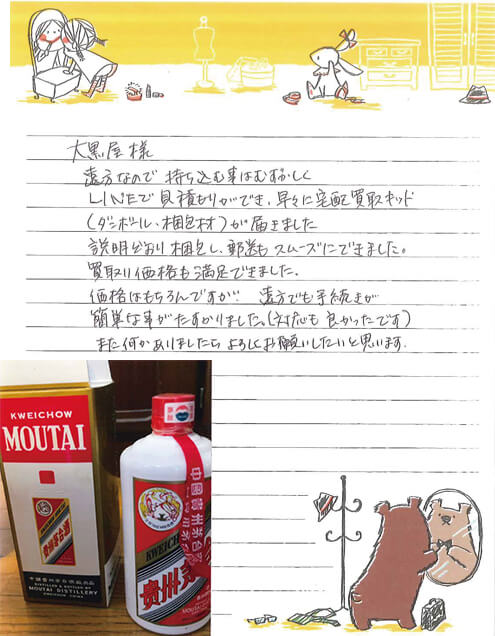 大黒屋様
遠方なので 持ち込む事はむずかしく
LINEで見積もりができ、早々に宅配買取キッド
(ダンボール、梱包材)が届きました
説明どおり梱包し、郵送もスムーズにできました。
買取り価格も満足できました。
価格はもちろんですが 遠方でも手続きが
簡単な事がたすかりました。(対応も良かったです)
また何かありましたらよろしくお願いしたいと思います。
KWEICHOW
MOUTAI
贵州茅台酒
中國貴州茅台酒
KWEICHOW
贵州茅
DISTILLED & BOTTLED BY
MOUTAI DISTILLERY
KWEICHOW CHINA